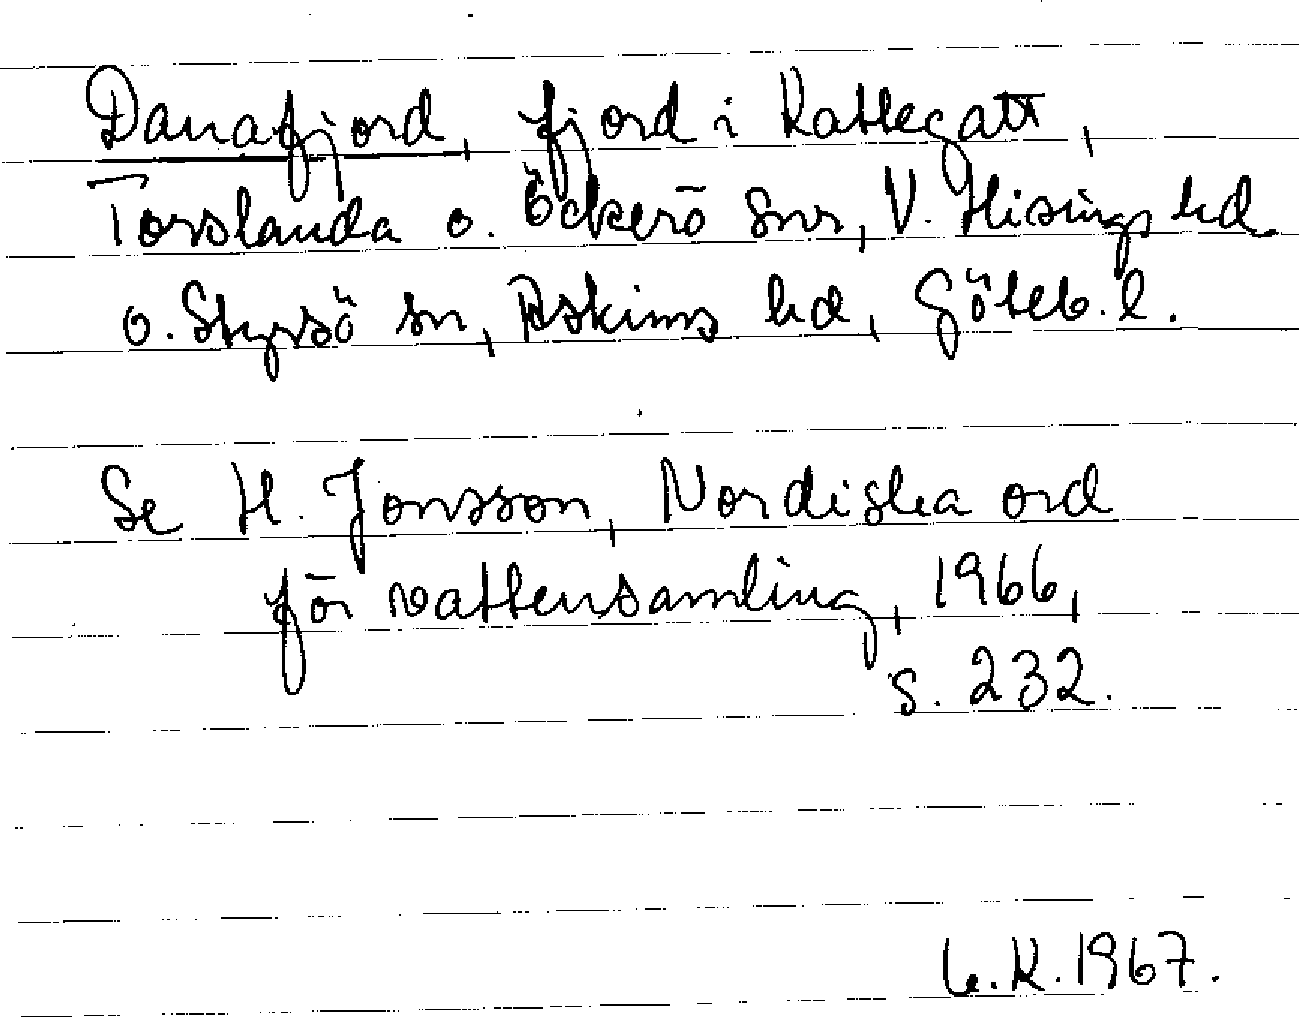 Danafjord, fjord i Kattegatt,
Torslanda o. Öckerö snr, V. Hisings hd
o. Styrsö sn, Askims hd, Göteb. l.
Se H. Jonsson, Nordiska ord
för vattensamling, 1966,
s. 232.
K. 1967.